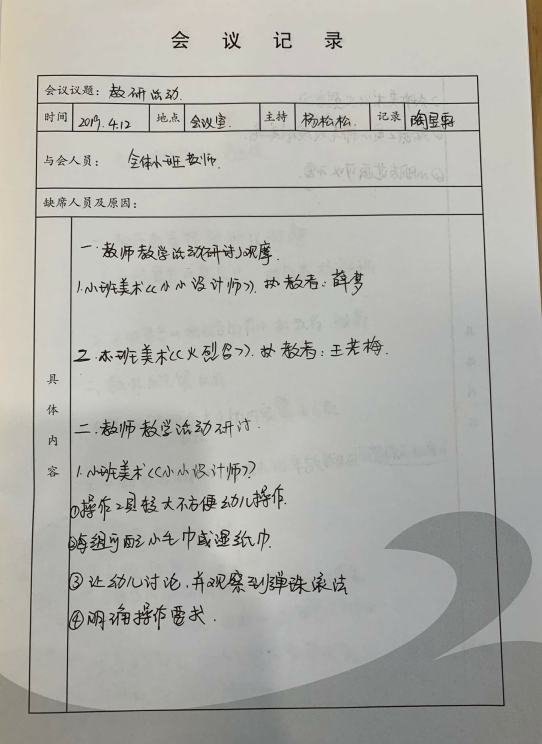 会议记录
会议议题：教研活动.
时间 2019.4.12 地点 会议室. 主持 杨松松. 记录 陶昱霖
与会人员：全体小班教师.
缺席人员及原因：
具体内容
一. 教师教学活动(研讨)观摩.
1.小班美术《小小设计师》. 执教者：薛梦
2.小班美术《火烈鸟》. 执教者：王老梅.
二. 教师教学活动研讨.
1.小班美术《小小设计师》
①操作工具较大不方便幼儿操作.
②每组可配小毛巾或湿纸巾.
③让幼儿讨论,并观察到弹珠滚法
④明确操作要求.